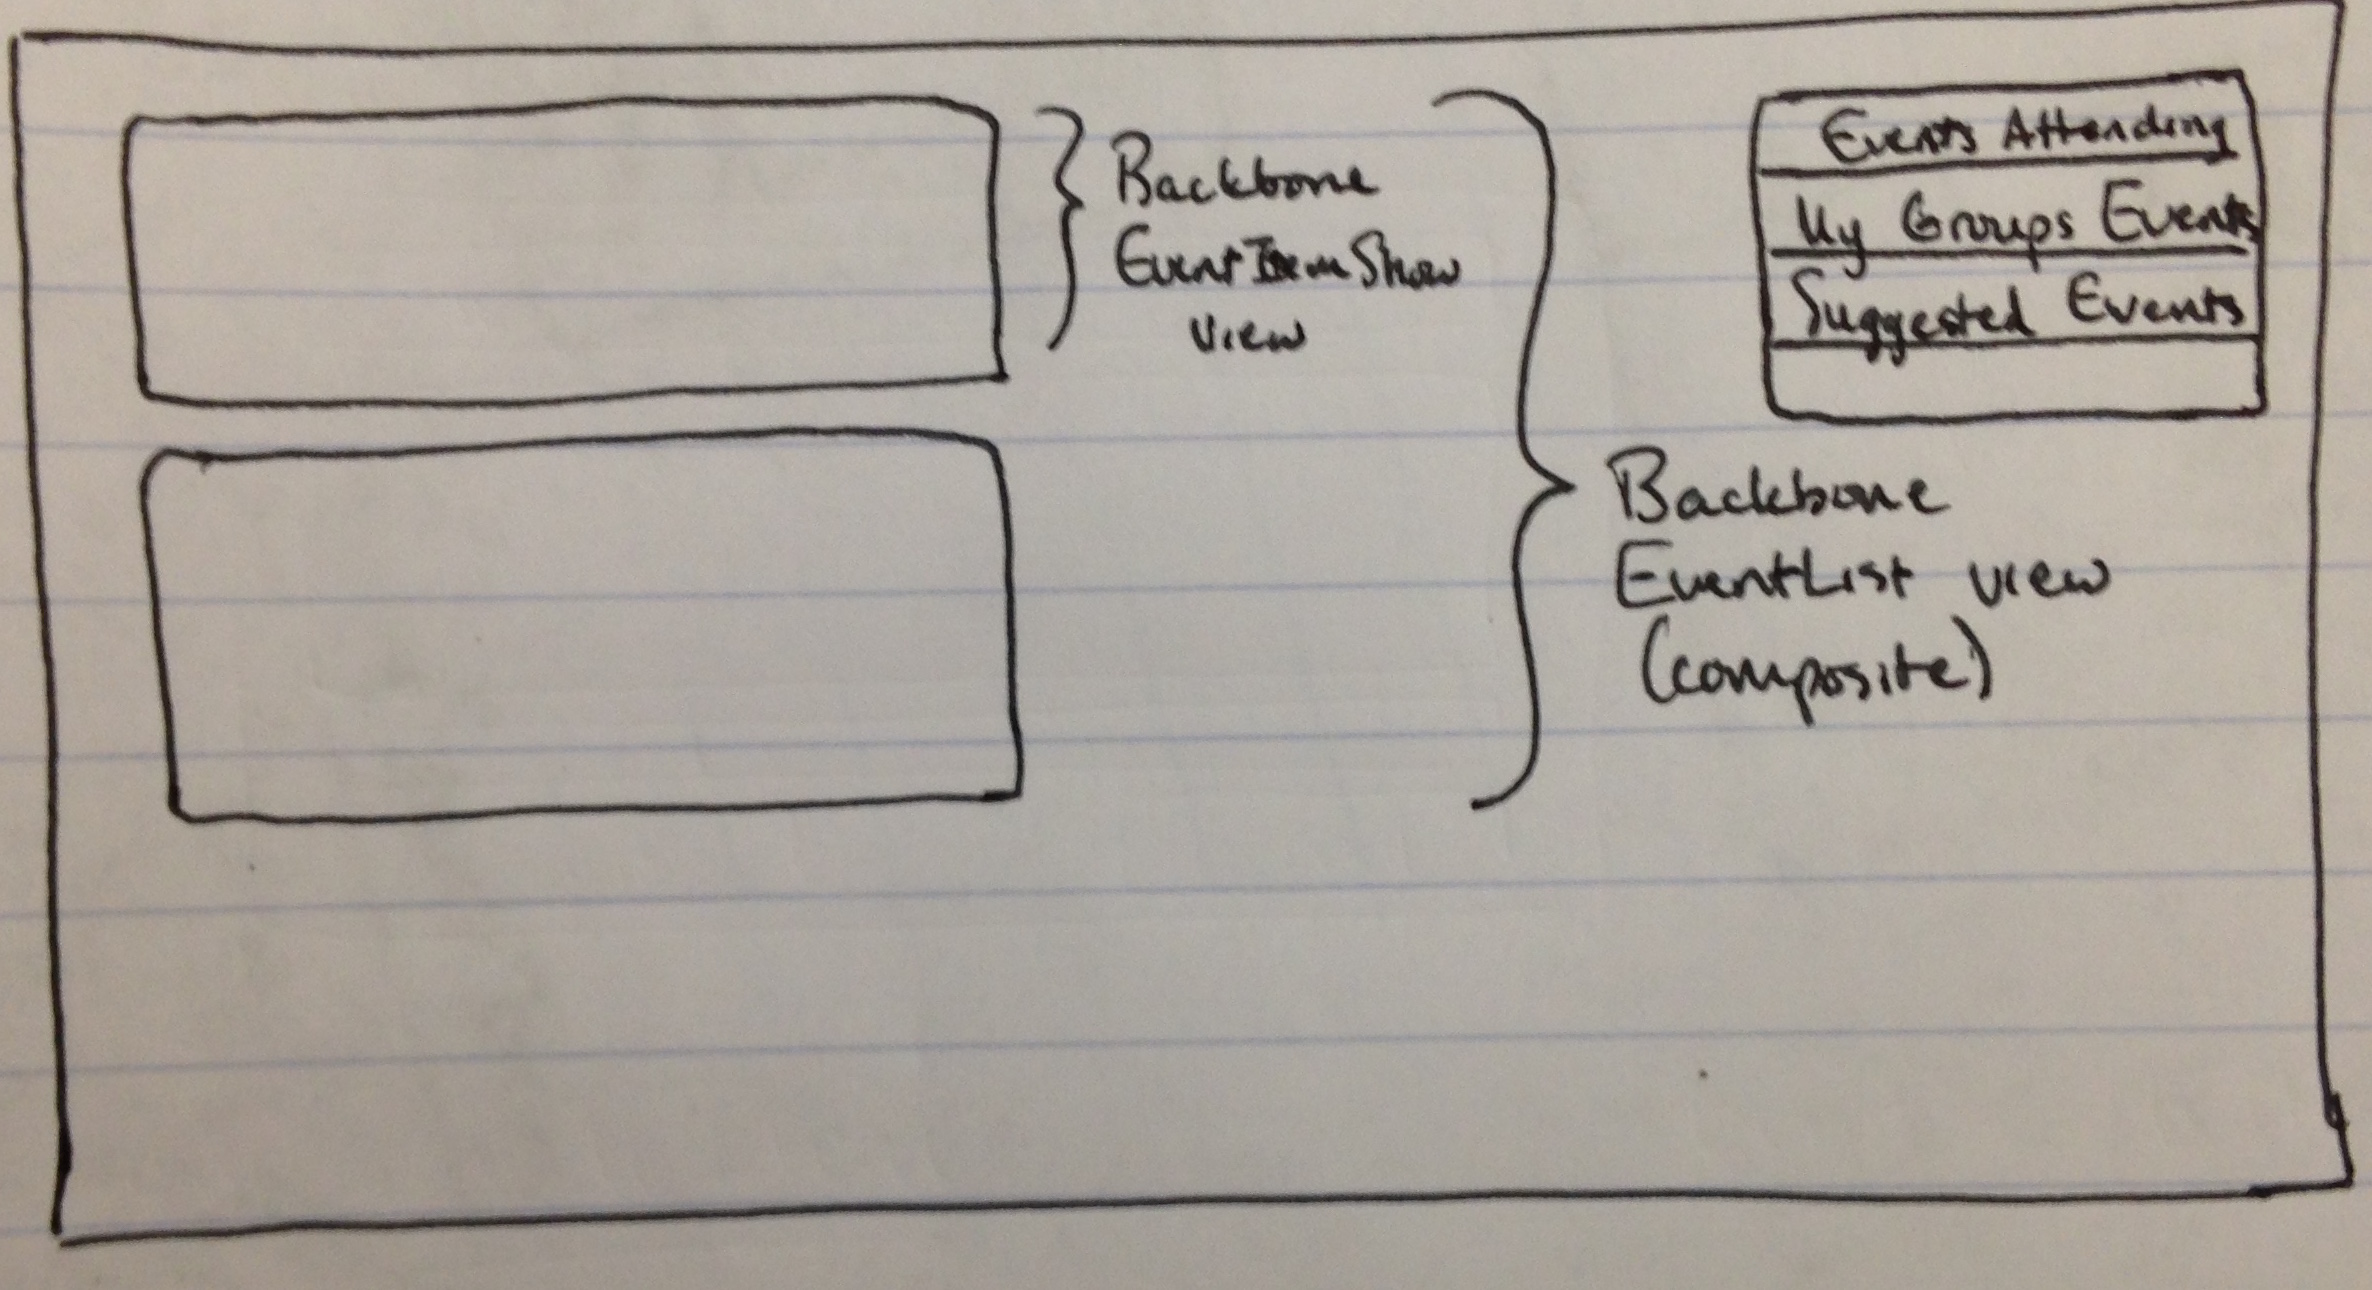 Backbone
EventItemShow
view
Events Attending
My Groups Events
Suggested Events
Backbone
EventList view
(composite)